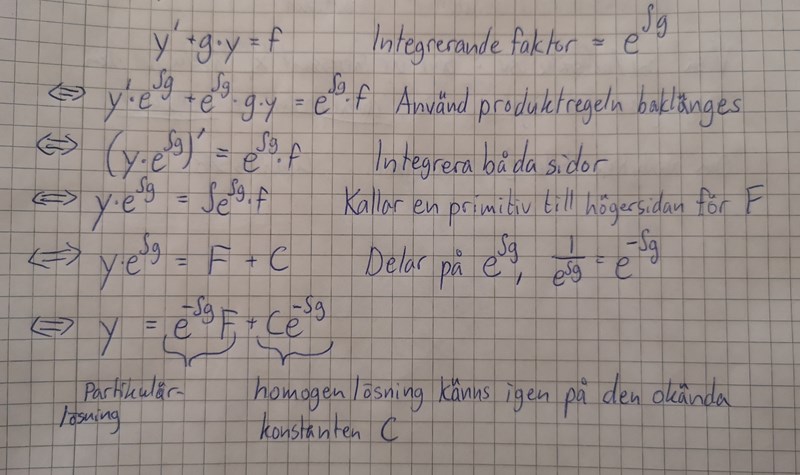 y' + g·y = f Integrerande faktor = e^∫g
⇔ y'·e^∫g + e^∫g·g·y = e^∫g·f Använd produktregeln baklänges
⇔ (y·e^∫g)' = e^∫g·f Integrera båda sidor
⇔ y·e^∫g = ∫e^∫g·f Kallar en primitiv till högersidan för F
⇔ y·e^∫g = F + C Delar på e^∫g, 1/e^∫g = e^-∫g
⇔ y = e^-∫g F + Ce^-∫g
Partikulär- homogen lösning känns igen på den okända
lösning konstanten C